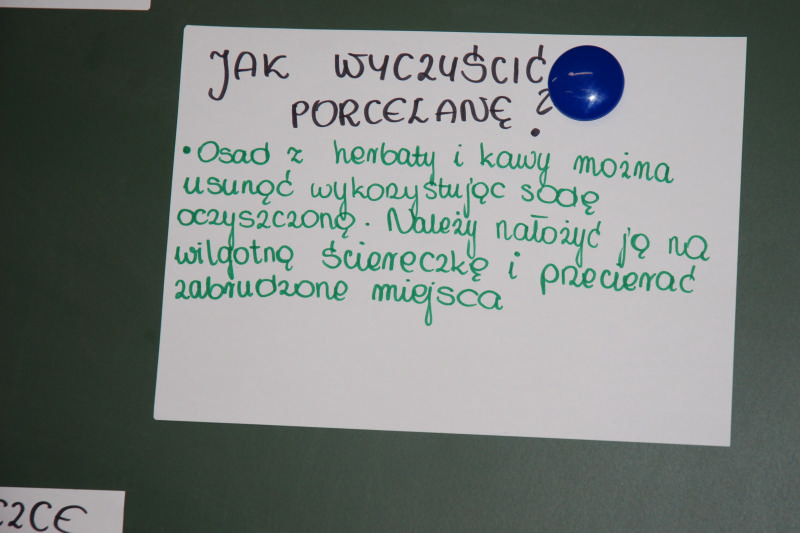 JAK WYCZYŚCIĆ
PORCELANĘ?
• Osad z herbaty i kawy można
usunąć wykozystując sodę
oczyszczoną. Należy nałożyć ją na
wilgotną ściereczkę i przecierać
zabrudzone miejsca
CZCE